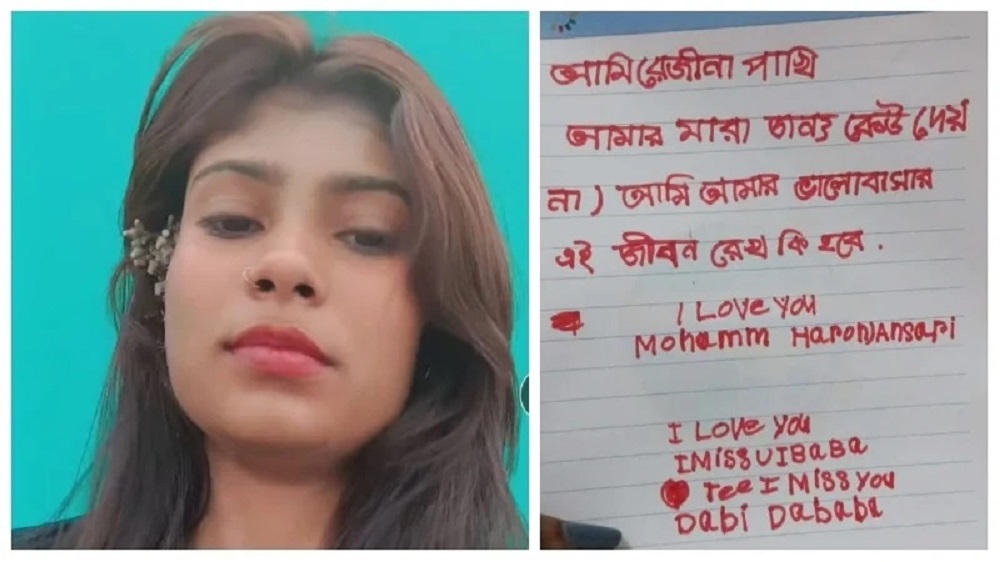 আমি রেজীনা পাখি
আমার মারা জান্য কেউ দেয়
না) আমি আমার ভালোবাসার
এই জীবন রেখ কি হবে.
I Love You
Mohamm HaronAnsari
I Love You
IMissUIBaBa
Tee I Miss you
Dabi Dababa